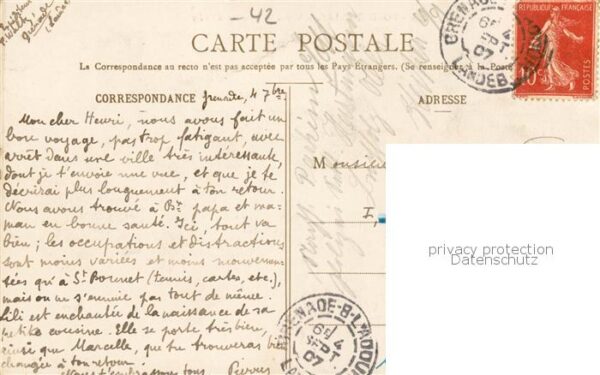 -42
CARTE POSTALE
La Correspondance au recto n'est pas acceptée par tous les Pays Etrangers. (Se renseigner à la Poste
CORRESPONDANCE
Grenade, 4 7bre.
ADRESSE
Mon cher Henri, nous avons fait un
bon voyage, pas trop fatigant, avec
arrêt dans une ville très intéressante,
dont je t'envoie une vue, et que je te
décrirai plus longuement à ton retour.
Nous avons trouvé à Bx papa et ma-
man en bonne santé. Ici, tout va
bien ; les occupations et distractions
sont moins variées et moins mouvemen-
tées qu'à St Bonnet (tennis, cartes, etc.),
mais on ne s'ennuie pas tout de même.
Lili est enchantée de la naissance de sa
petite cousine. Elle se porte très bien,
ainsi que Marcelle, que tu trouveras bien
changée à ton retour.
Nous t'embrassons tous Pierre
Monsieur
I,
GRENADE
4
SEPT
07
LANDES
10c
POSTES
GRENADE-S-L'ADOUR
4
SEPT
07
privacy protection
Datenschutz